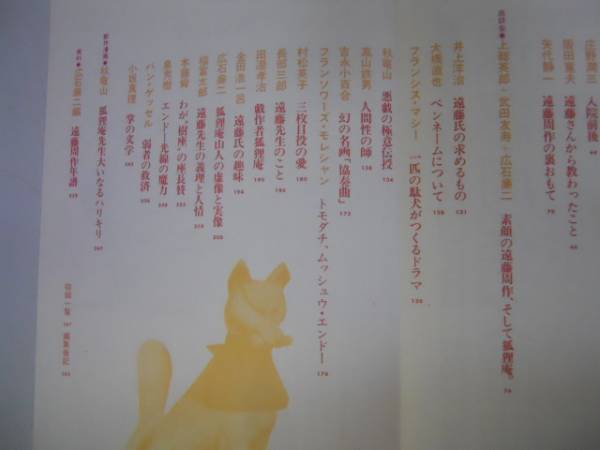 庄野潤三 入院前後 64
阪田寛夫 遠藤さんから教わったこと
矢代静一 遠藤周作の裏おもて 70
座談会●上総英郎・武田友寿・広石廉二 素顔の遠藤周作、そして狐狸庵。 76
井上洋治 遠藤氏の求めるもの 121
大橋直也 ペンネームについて 126
フランシス・マシー 一匹の駄犬がつくるドラマ
秋竜山 悪戯の極意伝授 134
高山鉄男 人間性の師
吉永小百合 幻の名画「協奏曲」 172
フランソワーズ・モレシャン トモダチ、ムッシュウ・エンドー 176
村松英子 三枚目役の愛 180
長部三郎 遠藤先生のこと
田沼孝治 戯作者狐狸庵
金田浩一呂 遠藤氏の趣味
広石廉二 狐狸庵山人の虚像と実像
稲富太郎 遠藤先生の義理と人情
木藤 わが〝樹座〟の座長讃
泉秀樹 エンドー光線の魔力
バン・ゲッセル 弱者の救済
小坂真理 掌の文学
新作漫画●秋竜山 狐狸庵先生大いなるハリキリ
資料●広石廉二編 遠藤周作年譜
編集後記